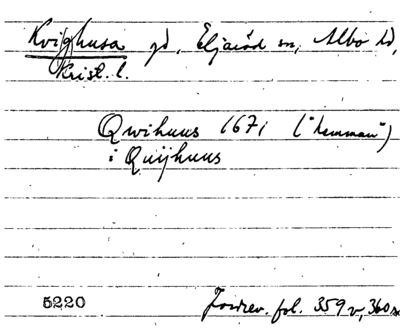 Kvighusa gd, Eljaröd sn, Albo hd,
Krist. l.
Qwihuus 1671 ("hemman")
i Quijhuus
5220 Jordrev. fol. 359 v, 360 r